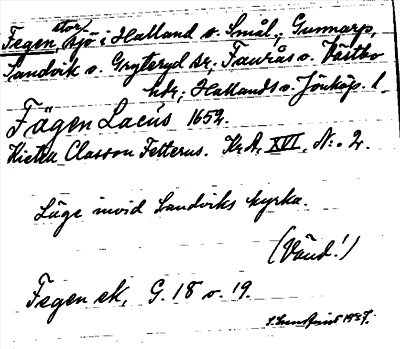 Fegen, stor sjö i Halland o. Smål., Gunnarp,
Sandvik o. Gryteryd sr, Faurås o. Västbo
hdr, Hallands o. Jönköp. l.
Fägen Lacus 1652.
Kietell Classon Felterus. Kr.A. XVI, N:o 2.
Läge invid Sandviks kyrka.
(Vänd!)
Fegen ek, G. 18 o. 19.
1927.